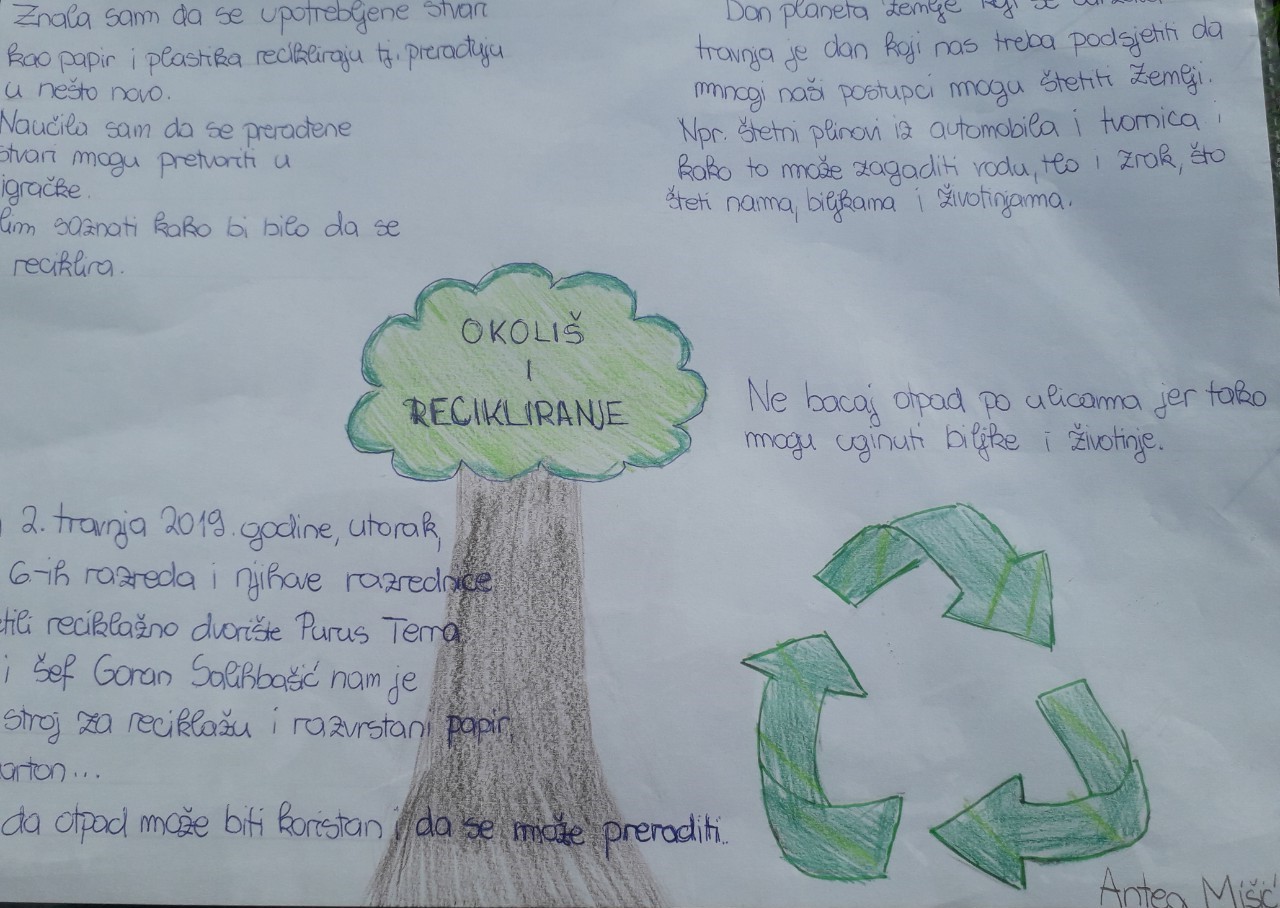 Znala sam da se upotrebljene stvari
kao papir i plastika recikliraju tj. prerađuju
u nešto novo.
Naučila sam da se prerađene
stvari mogu pretvoriti u
igračke.
saznati kako bi bilo da se
reciklira.
Dan planeta Zemlje koji se
travnja je dan koji nas treba podsjetiti da
mnogi naši postupci mogu štetiti Zemlji.
Npr. štetni plinovi iz automobila i tvornica i
kako to može zagaditi vodu, tlo i zrak, što
šteti nama, biljkama i životinjama.
OKOLIŠ
I
RECIKLIRANJE
Ne bacaj otpad po ulicama jer tako
mogu uginuti biljke i životinje.
2. travnja 2019. godine, utorak,
6-ih razreda i njihove razrednice
reciklažno dvorište Purus Terra
i šef Goran Salihbašić nam je
stroj za reciklažu i razvrstani papir,
arton...
da otpad može biti koristan i da se može preraditi.
Antea Mišić